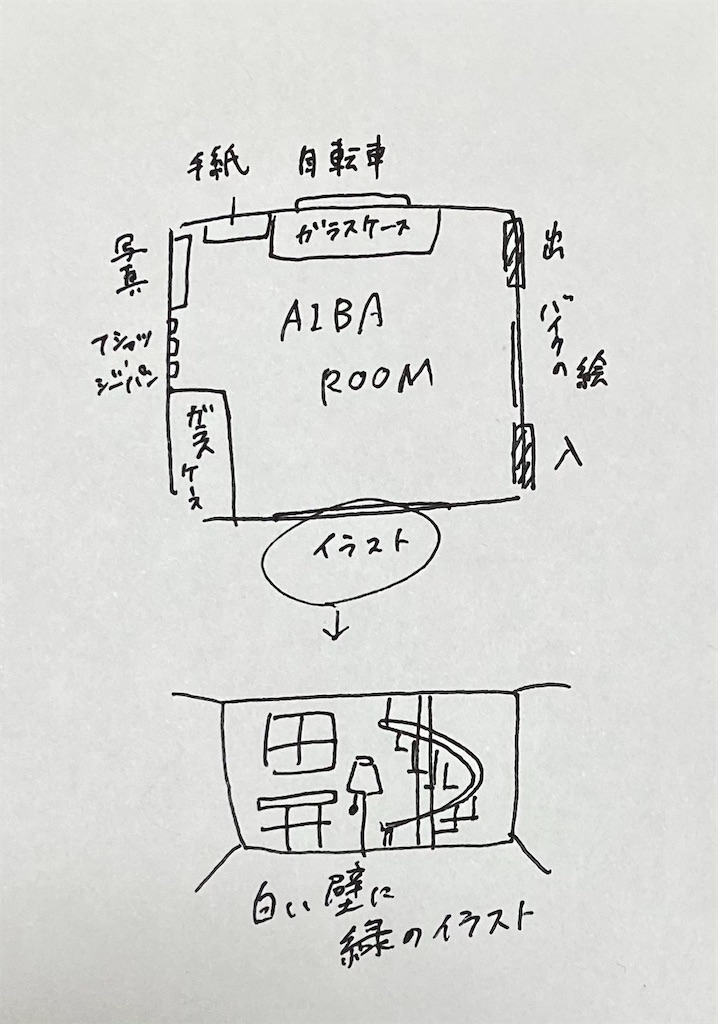 手紙
自転車
ガラスケース
写真
Tシャツ
ジーパン
AIBA
ROOM
出
バイクの絵
入
ガラスケース
イラスト
白い壁に
緑のイラスト